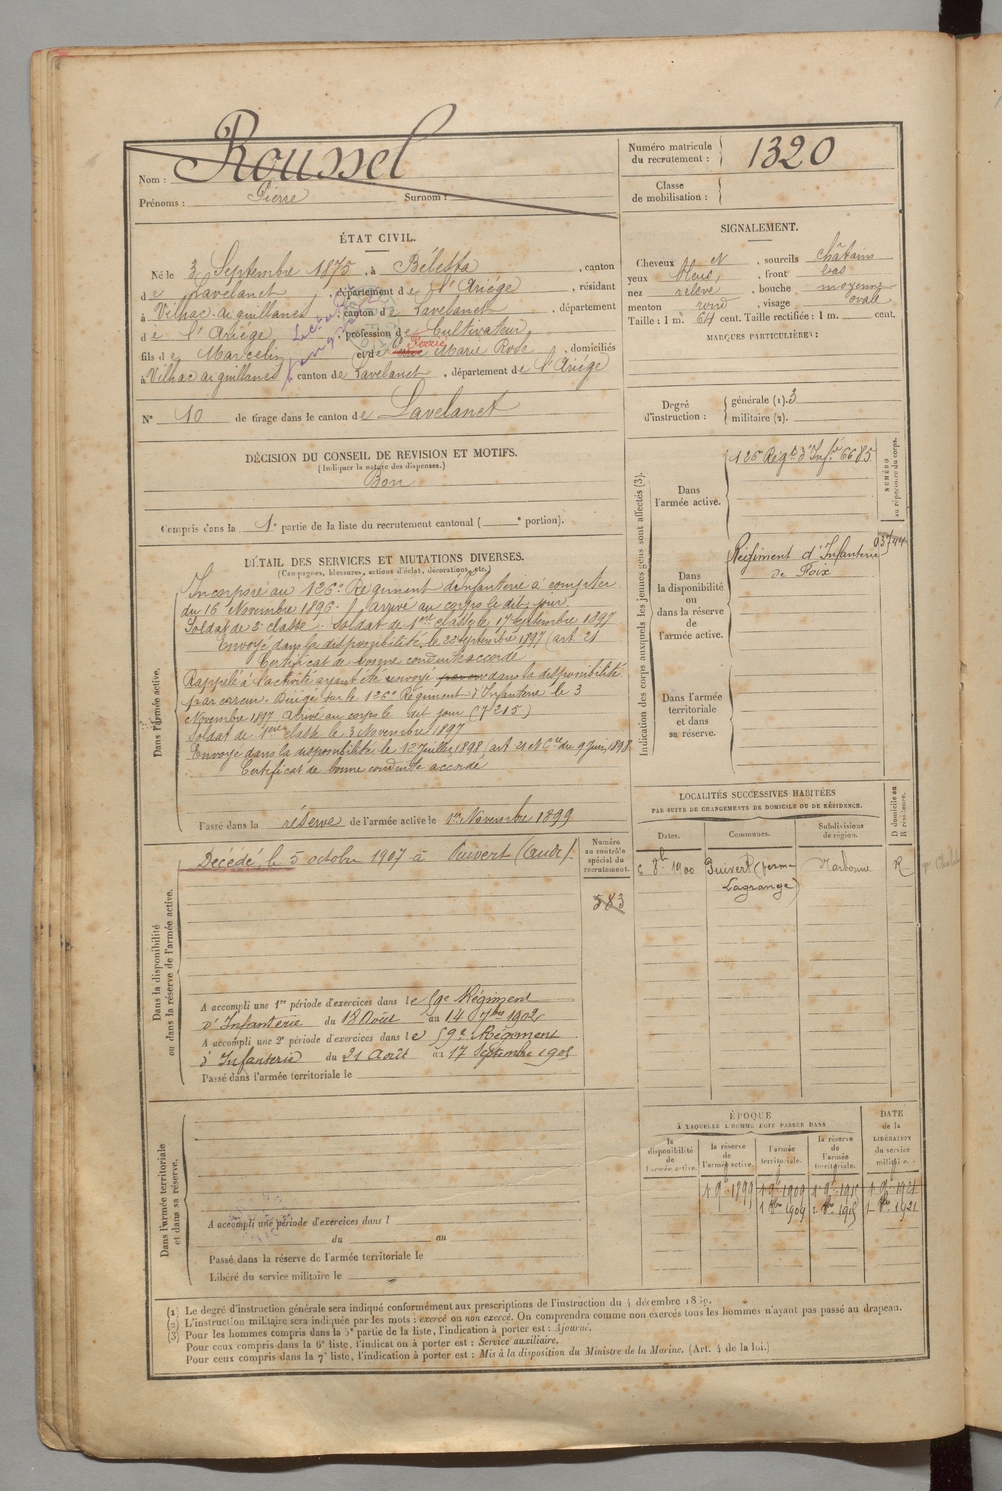 Nom : Roussel
Prénoms : Pierre Surnom :
Numéro matricule
du recrutement : 1320
Classe
de mobilisation :
ÉTAT CIVIL.
Né le 3 Septembre 1875, à Bélesta, canton
de Lavelanet, département de l'Ariége, résidant
à Vilhac-aiguillanes, canton de Lavelanet, département
de l'Ariége, profession de Cultivateur
fils de Marcelin et de Ferrié Marie Rose, domiciliés
à Vilhac aiguillanes canton de Lavelanet, département de l'Ariége
N° 10 de tirage dans le canton de Lavelanet
SIGNALEMENT.
Cheveux et, sourcils châtains
yeux bleus, front bas
nez relevé, bouche moyenne
menton rond, visage ovale
Taille : 1 m. 64 cent. Taille rectifiée : 1 m. cent.
MARQUES PARTICULIÈRES :
Degré
d'instruction :
générale (1). 3
militaire (2).
DÉCISION DU CONSEIL DE REVISION ET MOTIFS.
(Indiquer la nature des dispenses.)
Bon
Compris dans la 1e partie de la liste du recrutement cantonal ( e portion).
Indication des corps auxquels les jeunes gens sont affectés (3).
NUMÉRO
au répertoire du corps.
Dans
l'armée active.
126e Régt d'Infie 6685
Dans
la disponibilité
ou
dans la réserve
de
l'armée active.
Régiment d'Infanterie
de Foix
Dans l'armée
territoriale
et dans
sa réserve.
DÉTAIL DES SERVICES ET MUTATIONS DIVERSES.
(Campagnes, blessures, actions d'éclat, décorations, etc.)
Dans l'armée active.
Incorporé au 126e Régiment d'Infanterie à compter
du 16 Novembre 1896. arrivé au corps le dit jour.
Soldat de 2e classe. Soldat de 1ere classe le 17 Septembre 1897
Envoyé dans la disponibilité le 22 Septembre 1897 (art. 21
Certificat de bonne conduite accordé
Rappelé à l'activité ayant été envoyé dans la disponibilité
par erreur. Dirigé sur le 126e Régiment d'Infanterie le 3
Novembre 1897 Arrivé au corps le dit jour (7215)
Soldat de 1ere classe le 3 Novembre 1897
Envoyé dans la disponibilité le 12 Juillet 1898 (art. 21 et Cre du 9 Juin 1898
Certificat de bonne conduite accordé
Passé dans la réserve de l'armée active le 1er Novembre 1899
LOCALITÉS SUCCESSIVES HABITÉES
PAR SUITE DE CHANGEMENTS DE DOMICILE OU DE RÉSIDENCE.
D domicile ou
R résidence.
Dates.
Communes.
Subdivisions
de région.
8b 1900 Puivert (ferme Narbonne R
Lagrange)
Dans la disponibilité
ou dans la réserve de l'armée active.
Décédé, le 5 octobre 1907 à Puivert (Aude).
Numéro
au contrôle
spécial du
recrutement.
583
A accompli une 1re période d'exercices dans le 59e Régiment
d'Infanterie du 18 Août au 14 7bre 1902
A accompli une 2e période d'exercices dans le 59e Régiment
d'Infanterie du 21 Août au 17 Septembre 1905
Passé dans l'armée territoriale le
Dans l'armée territoriale
et dans sa réserve.
A accompli une période d'exercices dans l
du au
Passé dans la réserve de l'armée territoriale le
Libéré du service militaire le
ÉPOQUE
À LAQUELLE L'HOMME DOIT PASSER DANS
DATE
de la
LIBÉRATION
du service
militaire.
la
disponibilité
de
l'armée active.
la réserve
de
l'armée active.
l'armée
territoriale.
la réserve
de
l'armée
territoriale.
1 9b 1899 1 9b 1909 1 9b 1915 1 9b 1921
1 8bre 1909 1 8bre 1915 1 8bre 1921
(1) Le degré d'instruction générale sera indiqué conformément aux prescriptions de l'instruction du 4 décembre 1889.
(2) L'instruction militaire sera indiquée par les mots : exercé ou non exercé. On comprendra comme non exercés tous les hommes n'ayant pas passé au drapeau.
(3) Pour les hommes compris dans la 5e partie de la liste, l'indication à porter est : Ajourné.
Pour ceux compris dans la 6e liste, l'indication à porter est : Service auxiliaire.
Pour ceux compris dans la 7e liste, l'indication à porter est : Mis à la disposition du Ministre de la Marine. (Art. 4 de la loi.)